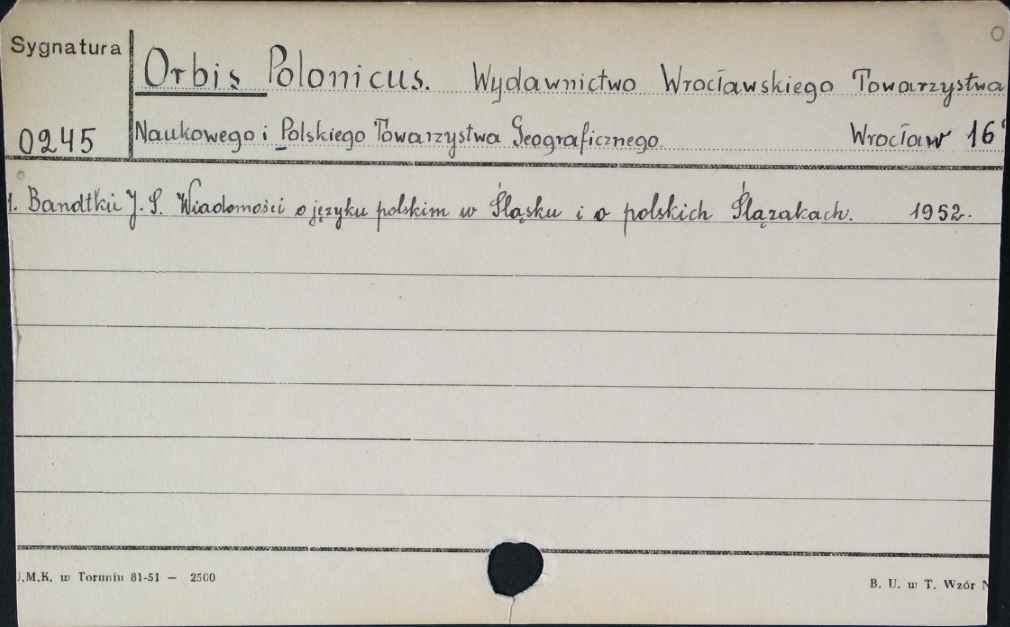 Sygnatura
Orbis Polonicus. Wydawnictwo Wrocławskiego Towarzystwa
0245
Naukowego i Polskiego Towarzystwa Geograficznego. Wrocław 16°
1. Bandtkie J. S. Wiadomości o języku polskim w Śląsku i o polskich Ślązakach. 1952.
U.M.K. w Toruniu 81-51 — 2500
B. U. w T. Wzór N